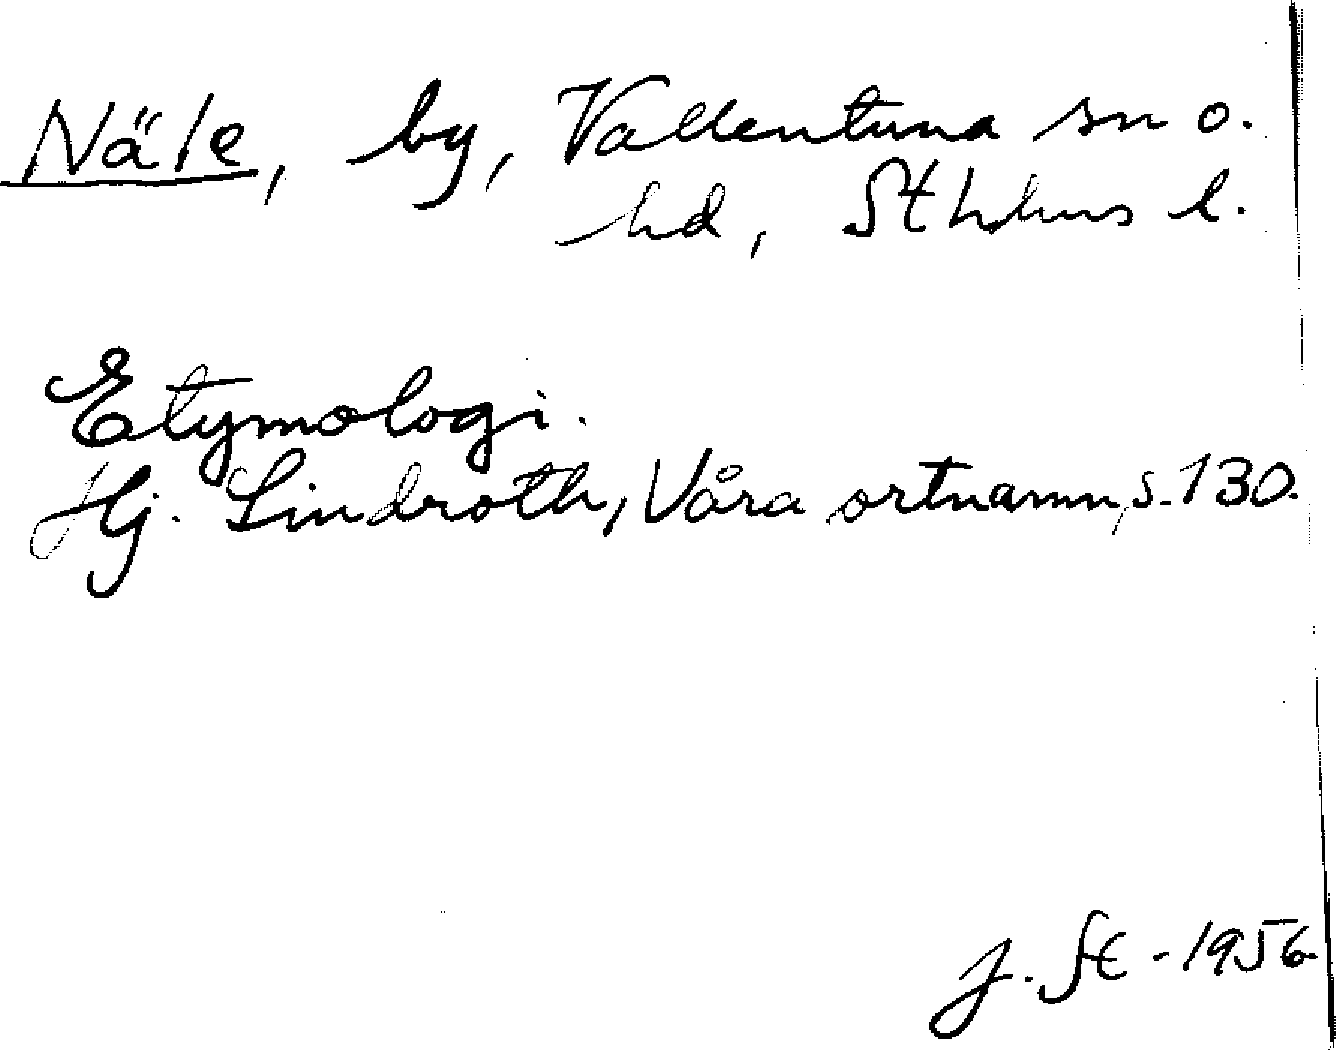 Näle, by, Vallentuna sn o.
hd, Sthlms l.
Etymologi.
Hj. Lindroth, Våra ortnamn, s. 130.
J. St - 1956